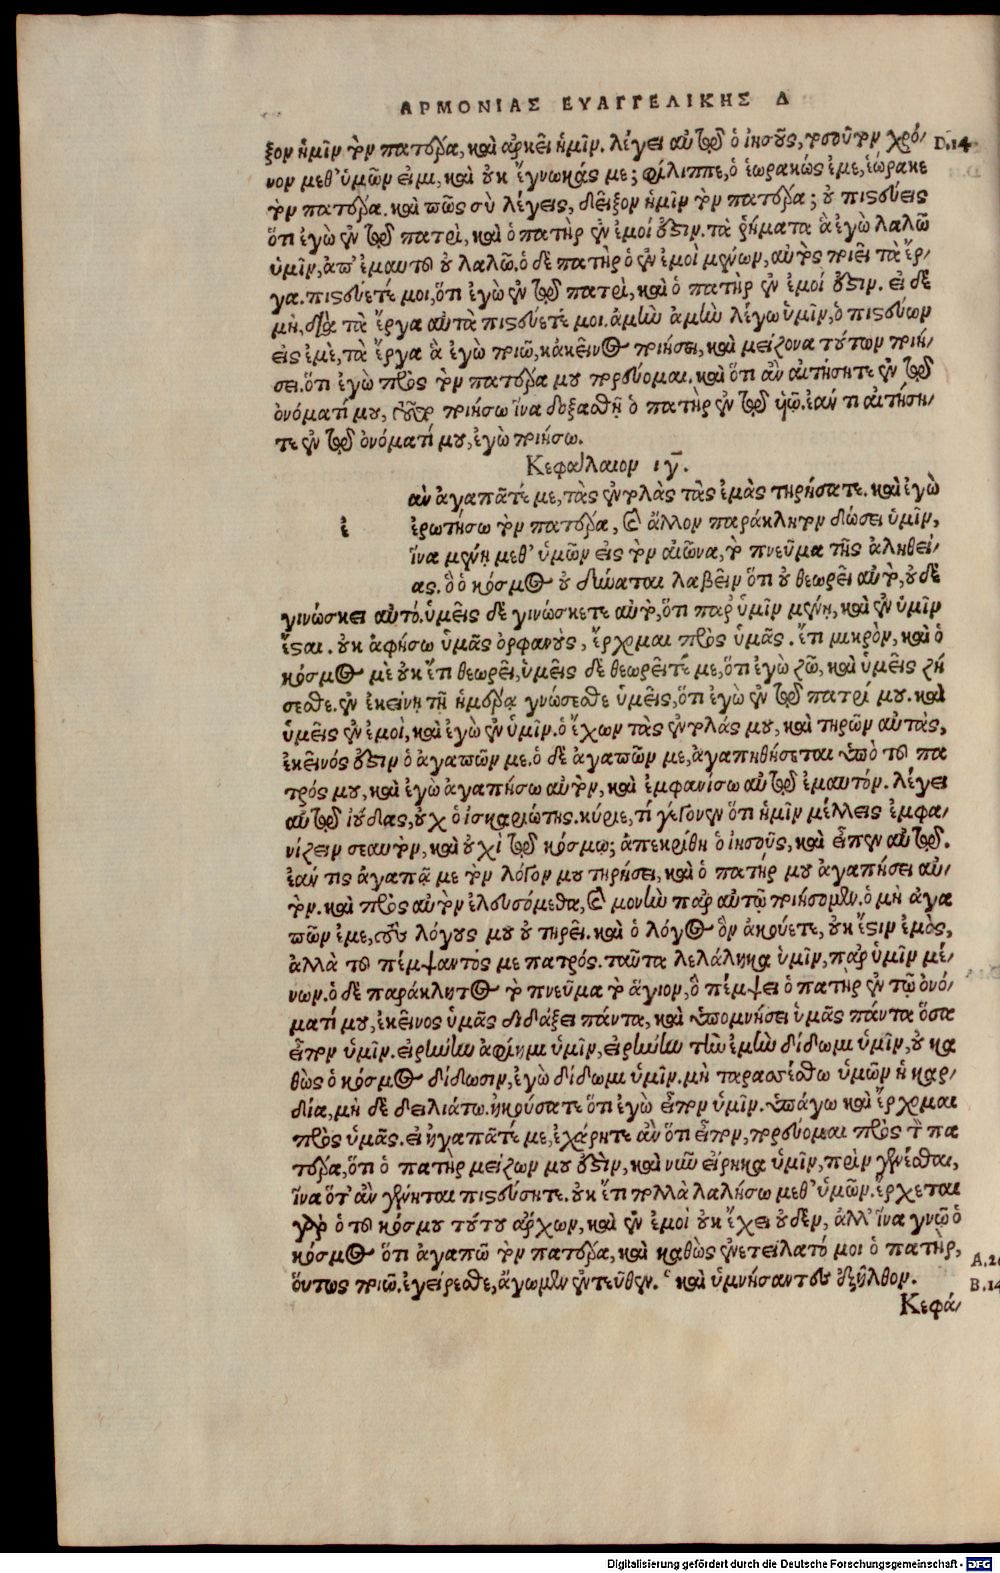 ΑΡΜΟΝΙΑΣ ΕΥΑΓΓΕΛΙΚΗΣ Δ
ξον ἡμῖν τὸν πατέρα, καὶ ἀρκεῖ ἡμῖν. λέγει αὐτῷ ὁ ἰησοῦς, τοσοῦτον χρό/ D.14
νον μεθ' ὑμῶν εἰμι, καὶ οὐκ ἔγνωκάς με; φίλιππε, ὁ ἑωρακώς ἐμε, ἑώρακε
τὸν πατέρα. καὶ πῶς σὺ λέγεις, δεῖξον ἡμῖν τὸν πατέρα; οὐ πιστεύεις
ὅτι ἐγὼ ἐν τῷ πατρὶ, καὶ ὁ πατὴρ ἐν ἐμοί ἐστιν. τὰ ῥήματα ἃ ἐγὼ λαλῶ
ὑμῖν, ἀπ' ἐμαυτοῦ οὐ λαλῶ. ὁ δὲ πατὴρ ὁ ἐν ἐμοὶ μένων, αὐτὸς ποιεῖ τὰ ἔρ/
γα. πιστεύετέ μοι, ὅτι ἐγὼ ἐν τῷ πατρὶ, καὶ ὁ πατὴρ ἐν ἐμοί ἐστιν. εἰ δὲ
μὴ, διὰ τὰ ἔργα αὐτὰ πιστεύετέ μοι. ἀμὴν ἀμὴν λέγω ὑμῖν, ὁ πιστεύων
εἰς ἐμὲ, τὰ ἔργα ἃ ἐγὼ ποιῶ, κἀκεῖνος ποιήσει, καὶ μείζονα τούτων ποιή/
σει. ὅτι ἐγὼ πρὸς τὸν πατέρα μου πορεύομαι. καὶ ὅτι ἂν αἰτήσητε ἐν τῷ
ὀνόματί μου, τοῦτο ποιήσω ἵνα δοξασθῇ ὁ πατὴρ ἐν τῷ ὑῷ. ἐάν τι αἰτήση/
τε ἐν τῷ ὀνόματί μου, ἐγὼ ποιήσω.
Κεφάλαιον ιγ.
ἐ αν ἀγαπᾶτέ με, τὰς ἐντολὰς τὰς ἐμὰς τηρήσατε. καὶ ἐγὼ
ἐρωτήσω τὸν πατέρα, καὶ ἄλλον παράκλητον δώσει ὑμῖν,
ἵνα μένῃ μεθ' ὑμῶν εἰς τὸν αἰῶνα, τὸ πνεῦμα τῆς ἀληθεί/
ας. ὃ ὁ κόσμος οὐ δύναται λαβεῖν ὅτι οὐ θεωρεῖ αὐτὸ, οὐδὲ
γινώσκει αὐτό. ὑμεῖς δὲ γινώσκετε αὐτὸ, ὅτι παρ' ὑμῖν μένῃ, καὶ ἐν ὑμῖν
ἔσται. οὐκ ἀφήσω ὑμᾶς ὀρφανούς, ἔρχομαι πρὸς ὑμᾶς. ἔτι μικρὸν, καὶ ὁ
κόσμος μὲ οὐκ ἔτι θεωρεῖ, ὑμεῖς δὲ θεωρεῖτέ με, ὅτι ἐγὼ ζῶ, καὶ ὑμεῖς ζή
σεσθε. ἐν ἐκείνῃ τῇ ἡμέρᾳ γνώσεσθε ὑμεῖς, ὅτι ἐγὼ ἐν τῷ πατρί μου. καὶ
ὑμεῖς ἐν ἐμοὶ, καὶ ἐγὼ ἐν ὑμῖν. ὁ ἔχων τὰς ἐντολάς μου, καὶ τηρῶν αὐτὰς,
ἐκεῖνός ἐστιν ὁ ἀγαπῶν με. ὁ δὲ ἀγαπῶν με, ἀγαπηθήσεται ὑπὸ τοῦ πα
τρός μου, καὶ ἐγὼ ἀγαπήσω αὐτὸν, καὶ ἐμφανίσω αὐτῷ ἐμαυτόν. λέγει
αὐτῷ ἰούδας, οὐχ ὁ ἰσκαριώτης. κύριε, τί γέγονεν ὅτι ἡμῖν μέλλεις ἐμφα/
νίζειν σεαυτὸν, καὶ οὐχὶ τῷ κόσμῳ; ἀπεκρίθη ὁ ἰησοῦς, καὶ εἶπεν αὐτῷ.
ἐάν τις ἀγαπᾷ με τὸν λόγον μου τηρήσει, καὶ ὁ πατήρ μου ἀγαπήσει αὐ/
τὸν. καὶ πρὸς αὐτὸν ἐλευσόμεθα, καὶ μονὴν παρ' αὐτῷ ποιήσομεν. ὁ μὴ ἀγα
πῶν ἐμε, τοὺς λόγους μου οὐ τηρεῖ. καὶ ὁ λόγος ὃν ἀκούετε, οὐκ ἔστιν ἐμὸς,
ἀλλὰ τοῦ πέμψαντός με πατρός. ταῦτα λελάληκα ὑμῖν, παρ' ὑμῖν μέ/
νων. ὁ δὲ παράκλητος τὸ πνεῦμα τὸ ἅγιον, ὃ πέμψει ὁ πατὴρ ἐν τῷ ὀνό/
ματί μου, ἐκεῖνος ὑμᾶς διδάξει πάντα, καὶ ὑπομνήσει ὑμᾶς πάντα ὅσα
εἶπον ὑμῖν. εἰρήνην ἀφίημι ὑμῖν, εἰρήνην τὴν ἐμὴν δίδωμι ὑμῖν, οὐ κα
θὼς ὁ κόσμος δίδωσιν, ἐγὼ δίδωμι ὑμῖν. μὴ ταρασσέσθω ὑμῶν ἡ καρ/
δία, μὴ δὲ δειλιάτω. ἠκούσατε ὅτι ἐγὼ εἶπον ὑμῖν. ὑπάγω καὶ ἔρχομαι
πρὸς ὑμᾶς. εἰ ἠγαπᾶτέ με, ἐχάρητε ἂν ὅτι εἶπον, πορεύομαι πρὸς τὸν πα
τέρα, ὅτι ὁ πατὴρ μείζων μου ἐστὶν, καὶ νῦν εἴρηκα ὑμῖν, πρὶν γενέσθαι,
ἵνα ὅτ' ἂν γένηται πιστεύσητε. οὐκ ἔτι πολλὰ λαλήσω μεθ' ὑμῶν. ἔρχεται
γὰρ ὁ τοῦ κόσμου τούτου ἄρχων, καὶ ἐν ἐμοὶ οὐκ ἔχει οὐδὲν, ἀλλ' ἵνα γνῷ ὁ
κόσμος ὅτι ἀγαπῶ τὸν πατέρα, καὶ καθὼς ἐνετείλατό μοι ὁ πατὴρ,
ὅυτως ποιῶ. ἐγείρεσθε, ἄγωμεν ἐντεῦθεν. καὶ ὑμνήσαντες ἐξῆλθον. B.14
Κεφά/
Digitalisierung gefördert durch die Deutsche Forschungsgemeinschaft - DFG